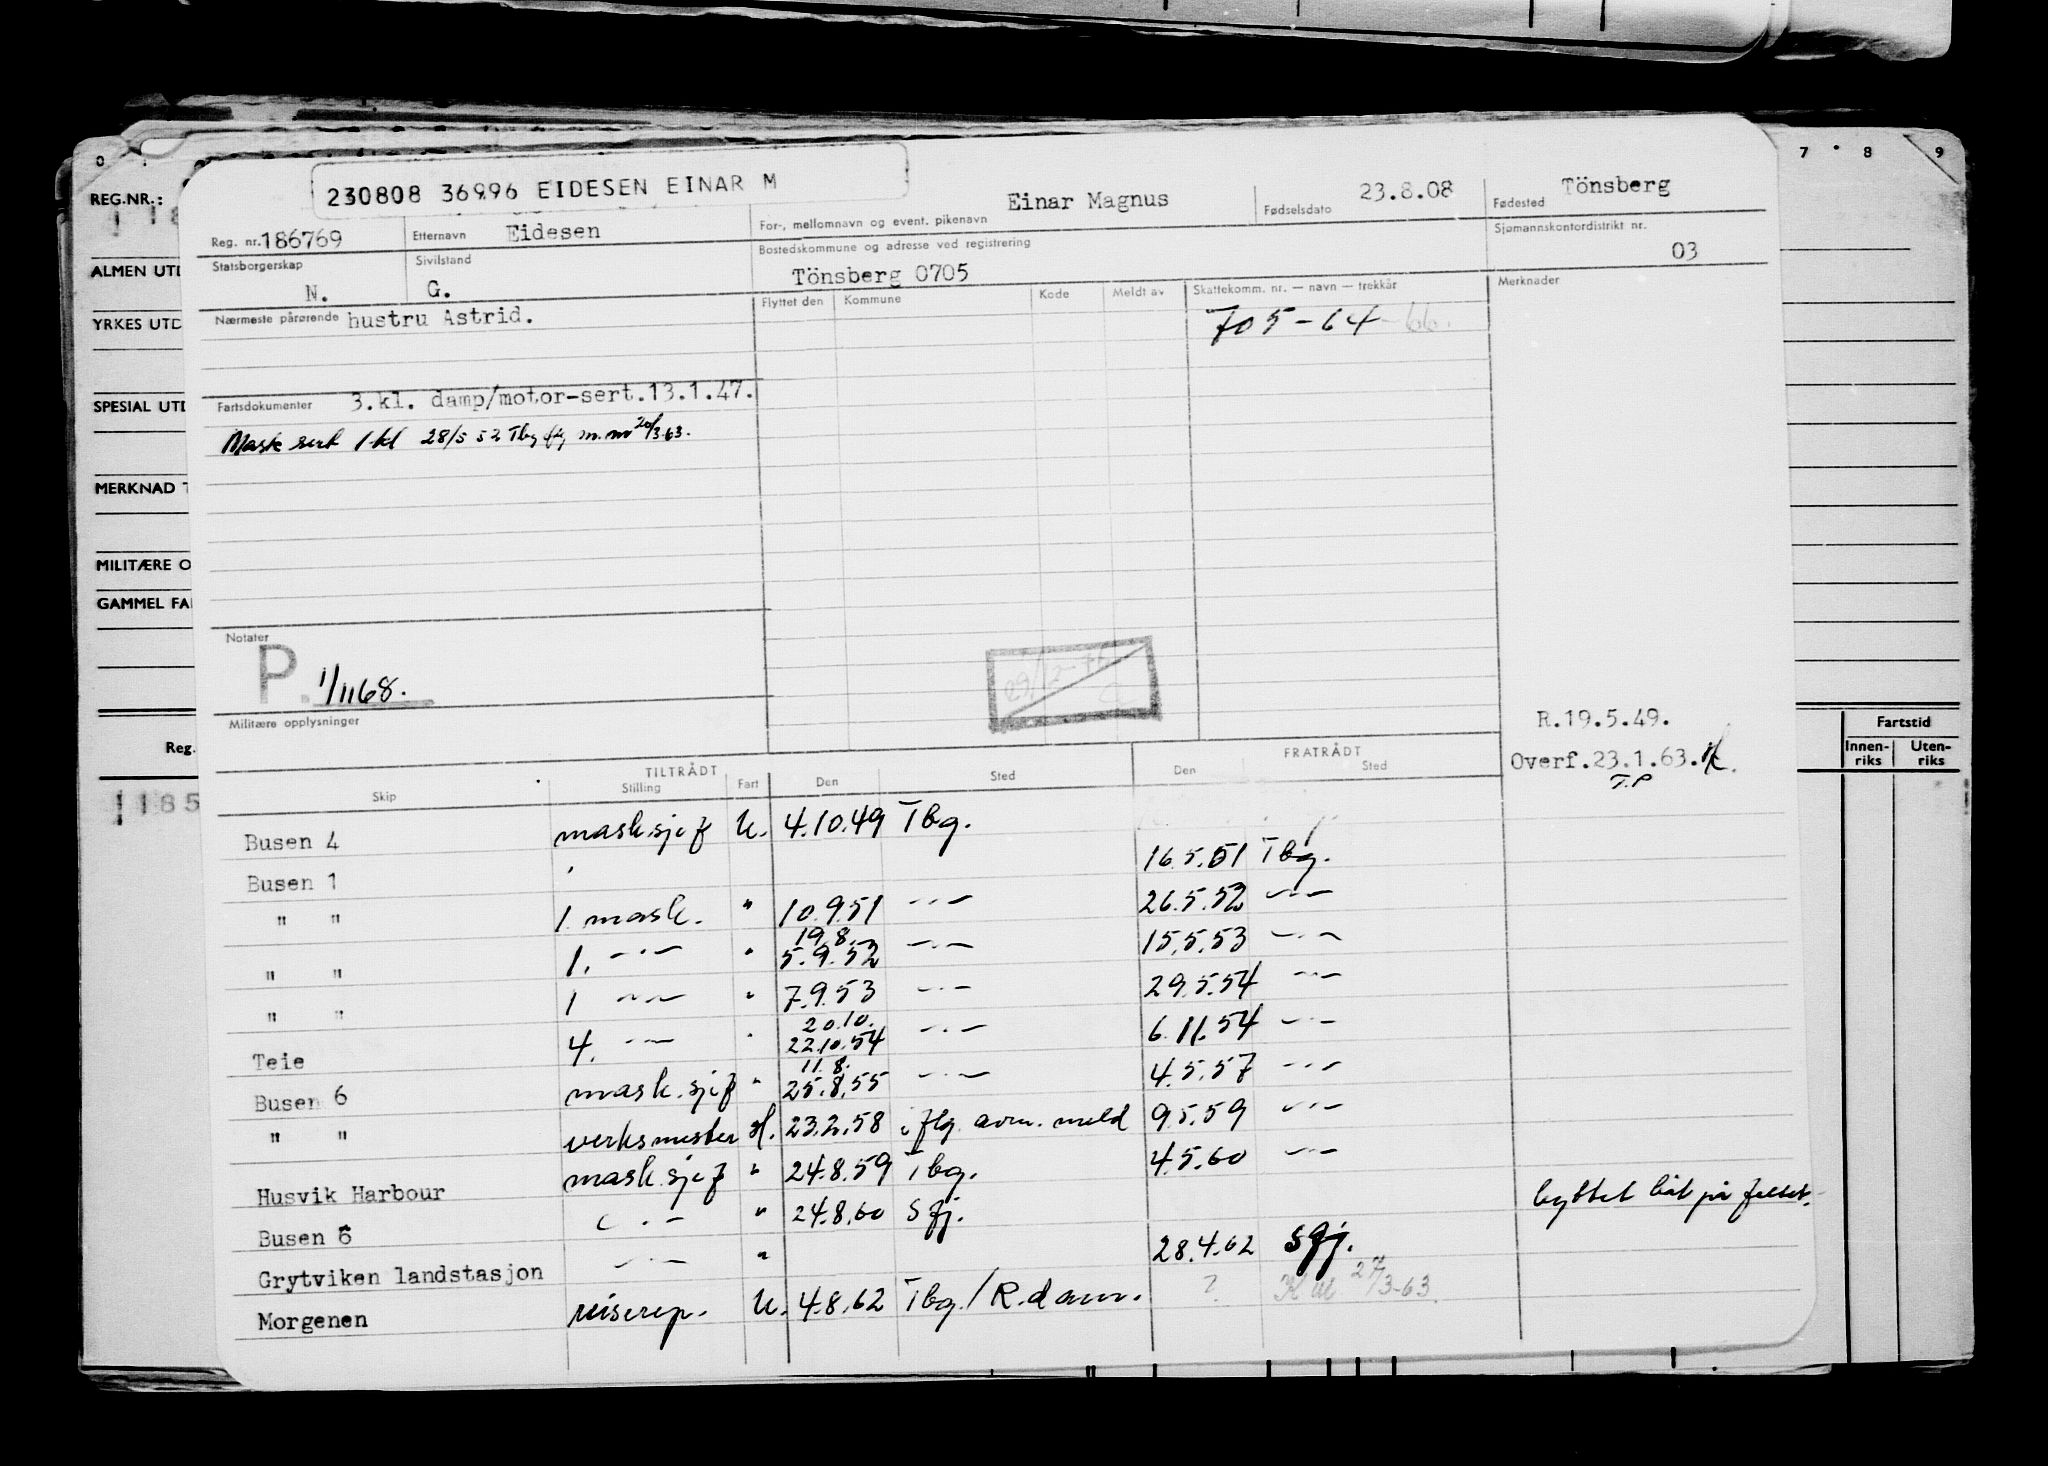 0
7 8 9
REG.NR.:
ALMEN UTD
YRKES UTD
SPESIAL UTD
MERKNAD
MILITÆRE O
GAMMEL FA
Reg.
Fartstid
Innen-riks Uten-riks
230808 36996 EIDESEN EINAR M
Reg. nr. 186769 Etternavn Eidesen For-, mellomnavn og event. pikenavn Einar Magnus Fødselsdato 23.8.08 Fødested Tönsberg
Statsborgerskap N. Sivilstand G. Bostedskommune og adresse ved registrering Tönsberg 0705 Sjømannskontordistrikt nr. 03
Nærmeste pårørende hustru Astrid. Flyttet den Kommune Kode Meldt av Skattekomm. nr. — navn — trekkår Merknader
705-64-66.
Fartsdokumenter 3.kl. damp/motor-sert.13.1.47.
Mask sert 1 kl 28/5 52 Tbg 20/3.63.
Notater
P. 1/1168.
Militære opplysninger
R.19.5.49.
Overf.23.1.63.
T.P
TILTRÅDT FRATRÅDT
Skip Stilling Fart Den Sted Den Sted
Busen 4 mask.sjef U. 4.10.49 Tbg.
Busen 1 16.5.51 Tbg.
" " 1 mask. " 10.9.51 -"- 26.5.52 -"-
19.8.
" " 1. -"- " 5.9.52 -"- 15.5.53 -"-
" " 1 -"- " 7.9.53 -"- 29.5.54 -"-
20.10.
Teie 4. -"- " 22.10.54 -"- 6.11.54 -"-
11.8.
Busen 6 mask.sjef " 25.8.55 -"- 4.5.57 -"-
" " verksmester H. 23.2.58 i flg. avm. meld 9.5.59 -"-
Husvik Harbour mask.sjef " 24.8.59 Tbg. 4.5.60 -"-
Busen 6 -"- " 24.8.60 Sfj. byttet båt på feltet.
Grytviken landstasjon -"- " 28.4.62 Sfj.
Morgenen reiserep. U. 4.8.62 Tbg./R.dam. ? 27/3-63.